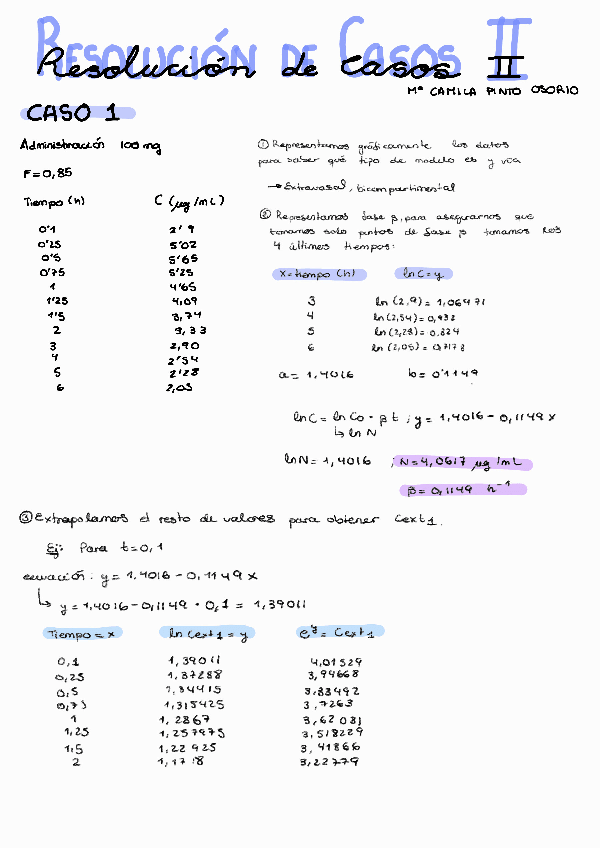 Resolución de Casos II
Resolución de Casos II
Mª CAMILA PINTO OSORIO
CASO 1
Administración 100 mg
F = 0,85
Tiempo (h) C (µg/mL)
0'1 2'9
0'25 5'02
0'5 5'65
0'75 5'25
1 4'65
1'25 4,09
1'5 3,74
2 3,33
3 2,90
4 2'54
5 2'28
6 2,05
① Representamos gráficamente los datos
para saber qué tipo de modelo es y vía
→ Extravasal, bicompartimental
② Representamos fase β, para asegurarnos que
tomamos solo puntos de fase β tomamos los
4 últimos tiempos:
X = tiempo (h) ln C = y
3 ln (2,9) = 1,06471
4 ln (2,54) = 0,932
5 ln (2,28) = 0,824
6 ln (2,05) = 0,7178
a = 1,4016 b = 0'1149
ln C = ln C0 - β t ; y = 1,4016 - 0,1149 x
↳ ln N
ln N = 1,4016 ; N = 4,0617 µg/mL
β = 0,1149 h⁻¹
③ Extrapolamos el resto de valores para obtener Cext1.
Ej: Para t = 0,1
ecuación: y = 1,4016 - 0,1149 x
↳ y = 1,4016 - 0,1149 · 0,1 = 1,39011
Tiempo = x ln Cext1 = y e^y = Cext1
0,1 1,39011 4,01529
0,25 1,37288 3,94668
0,5 1,34415 3,83492
0,75 1,315425 3,7263
1 1,2867 3,62081
1,25 1,257975 3,518229
1,5 1,22925 3,41866
2 1,1718 3,22779